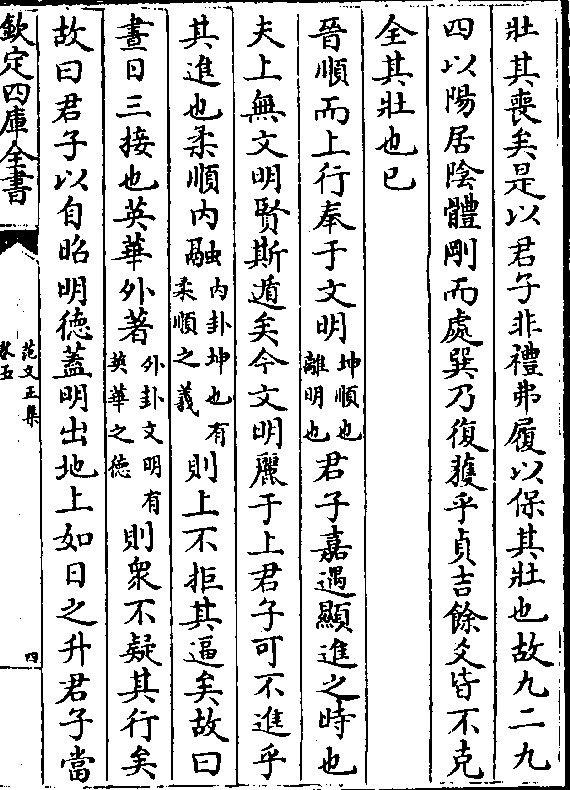 壯其喪矣是以君子非禮弗履以保其壯也故九二九
四以陽居陰體剛而處巽乃復獲乎貞吉餘爻皆不克
全其壯也已
晉順而上行奉于文明坤順也離明也君子嘉遇顯進之時也
夫上無文明賢斯遁矣今文明麗于上君子可不進乎
其進也柔順内融内卦坤也有柔順之義則上不拒其逼矣故曰
晝日三接也英華外著外卦文明有英華之德則衆不疑其行矣
故曰君子以自昭明德蓋明出地上如日之升君子當
欽定四庫全書
范文正集
卷五
四